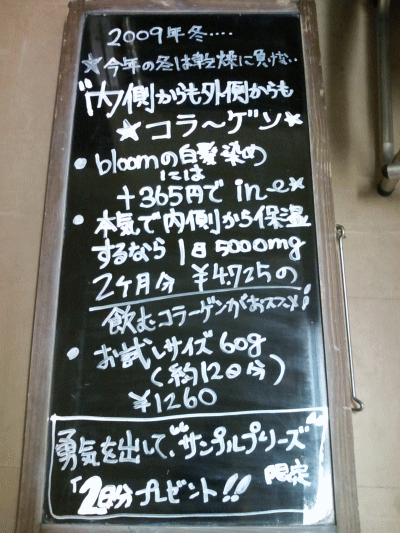 2009年冬....
★今年の冬は乾燥に負けない..
"内側からも外側からも
★コラ〜ゲン★
• bloomの白髪染め
には
+365円で in〜★
• 本気で内側から保湿
するなら 1日5000mg
2ヶ月分 ¥4.725の
飲むコラーゲンがおススメ!
• お試しサイズ60g
(約12日分)
¥1260
勇気を出して、"サンプルプリーズ"
「2日分プレゼント!! 限定